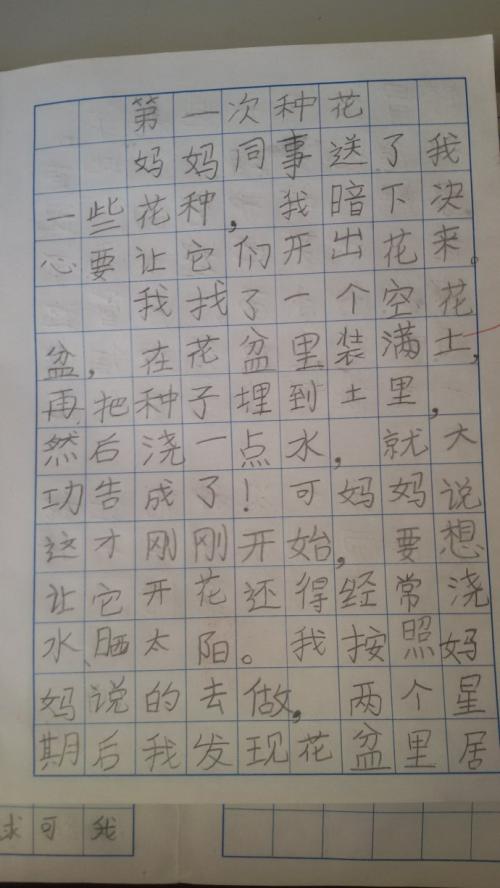 第一次种花
妈妈同事送了我
一些花种，我暗下决
心要让它们开出花来。
我找了一个空花
盆，在花盆里装满土，
再把种子埋到土里，
然后浇一点水，就大
功告成了！可妈妈说
这才刚刚开始，要想
让它开花还得经常浇
水、晒太阳。我按照妈
妈说的去做，两个星
期后我发现花盆里居
求可我